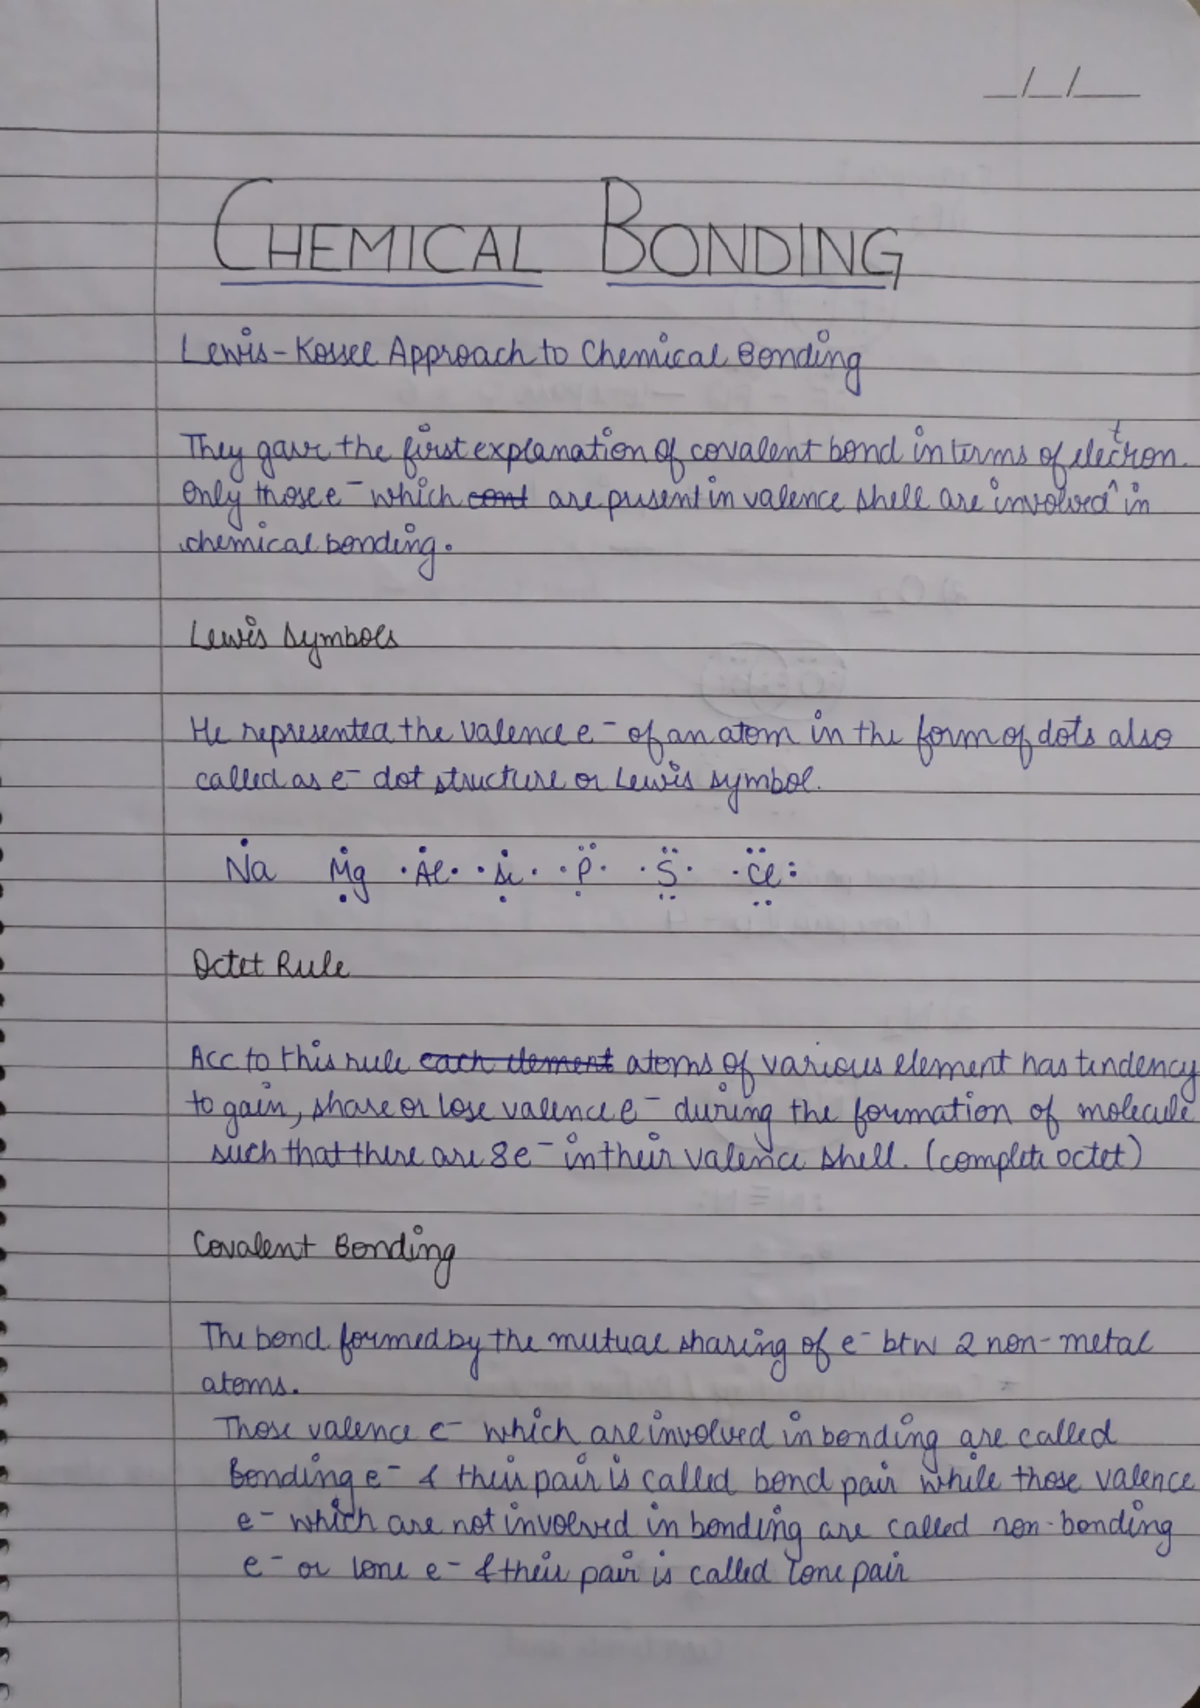 _/_/__
CHEMICAL BONDING
Lewis-Kossel Approach to Chemical Bonding
They gave the first explanation of covalent bond in terms of electron.
Only those e⁻ which ~~cont~~ are present in valence shell are involved^ in
chemical bonding.
Lewis Symbols
He represented the valence e⁻ of an atom in the form of dots also
called as e⁻ dot structure or Lewis symbol.
Na Mg ·Al· ·Si· ·P· ·S· ·Cl:
Octet Rule
Acc to this rule ~~each element~~ atoms of various element has tendency
to gain, share or lose valence e⁻ during the formation of molecule
such that there are 8e⁻ in their valence shell. (complete octet)
Covalent Bonding
The bond formed by the mutual sharing of e⁻ btw 2 non-metal
atoms.
Those valence e⁻ which are involved in bonding are called
Bonding e⁻ & their pair is called bond pair while those valence
e⁻ which are not involved in bonding are called non-bonding
e⁻ or lone e⁻ & their pair is called lone pair